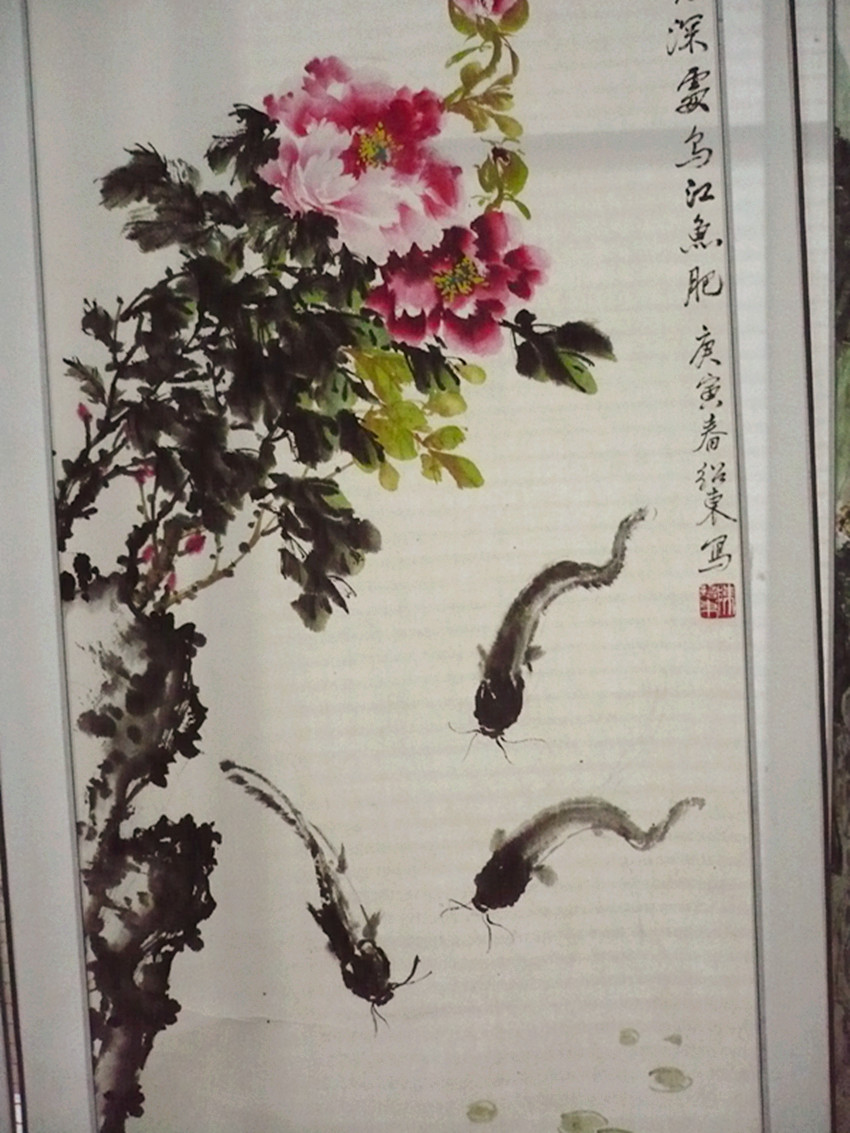 深處烏江魚肥 庚寅春紹東寫